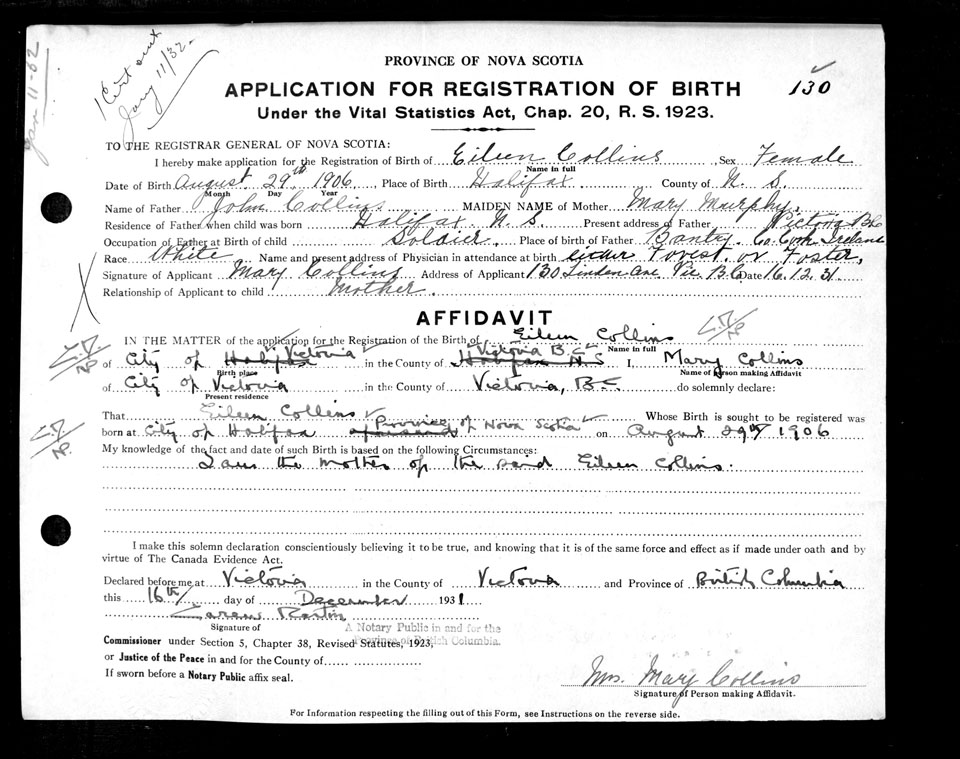 Jan 11-62
1 Cert sent
Jany 11/32.
PROVINCE OF NOVA SCOTIA
APPLICATION FOR REGISTRATION OF BIRTH
130
Under the Vital Statistics Act, Chap. 20, R. S. 1923.
TO THE REGISTRAR GENERAL OF NOVA SCOTIA:
I hereby make application for the Registration of Birth of Eileen Collins Sex Female
Name in full
Date of Birth August 29th 1906 Place of Birth Halifax County of N. S.
Month Day Year
Name of Father John Collins MAIDEN NAME of Mother Mary Murphy
Residence of Father when child was born Halifax N. S. Present address of Father Victoria B.C.
Occupation of Father at Birth of child Soldier. Place of birth of Father Bantry Co. Cork Ireland
Race White Name and present address of Physician in attendance at birth either Forest or Foster,
Signature of Applicant Mary Collins Address of Applicant 130 Linden Ave Vic. B.C. Date 16.12.31
Relationship of Applicant to child Mother.
AFFIDAVIT
IN THE MATTER of the application for the Registration of the Birth of Eileen Collins
Name in full
of City of Halifax Victoria in the County of Halifax N S Victoria B.C. I, Mary Collins
Birth place Name of Person making Affidavit
of City of Victoria in the County of Victoria, B.C. do solemnly declare:
Present residence
That Eileen Collins Whose Birth is sought to be registered was
born at City of Halifax Province of Nova Scotia on August 29th 1906
My knowledge of the fact and date of such Birth is based on the following Circumstances:
I am the mother of the said Eileen Collins.
I make this solemn declaration conscientiously believing it to be true, and knowing that it is of the same force and effect as if made under oath and by
virtue of The Canada Evidence Act.
Declared before me at Victoria in the County of Victoria and Province of British Columbia
this 16th day of December 1931
Signature of
A Notary Public in and for the
Province of British Columbia.
Commissioner under Section 5, Chapter 38, Revised Statutes, 1923,
or Justice of the Peace in and for the County of
If sworn before a Notary Public affix seal.
Mrs. Mary Collins
Signature of Person making Affidavit.
For Information respecting the filling out of this Form, see Instructions on the reverse side.